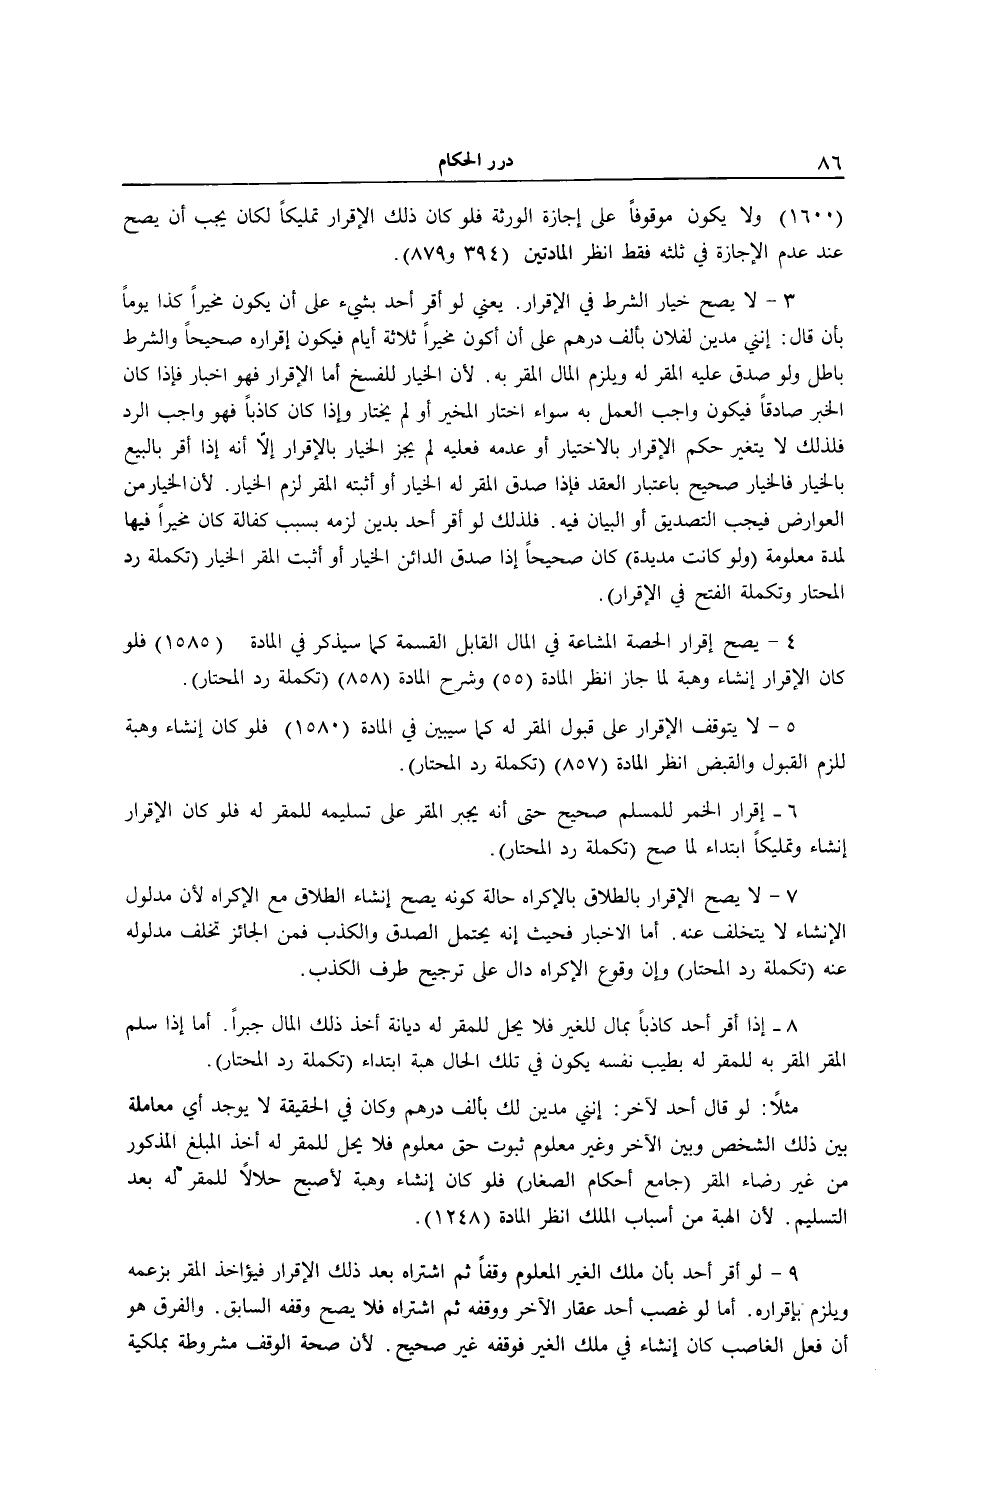 ٨٦
درر الحكام
(١٦٠٠) ولا يكون موقوفاً على إجازة الورثة فلو كان ذلك الإقرار تمليكاً لكان يجب أن يصح
عند عدم الإجازة في ثلثه فقط انظر المادتين (٣٩٤ و٨٧٩).
٣ - لا يصح خيار الشرط في الإقرار. يعني لو أقر أحد بشيء على أن يكون مخيراً كذا يوماً
بأن قال: إنني مدين لفلان بألف درهم على أن أكون مخيراً ثلاثة أيام فيكون إقراره صحيحاً والشرط
باطل ولو صدق عليه المقر له ويلزم المال المقر به. لأن الخيار للفسخ أما الإقرار فهو اخبار فإذا كان
الخبر صادقاً فيكون واجب العمل به سواء اختار المخبر أو لم يختار وإذا كان كاذباً فهو واجب الرد
فلذلك لا يتغير حكم الإقرار بالاختيار أو عدمه فعليه لم يجز الخيار بالإقرار إلّا أنه إذا أقر بالبيع
بالخيار فالخيار صحيح باعتبار العقد فإذا صدق المقر له الخيار أو أثبته المقر لزم الخيار. لأن الخيار من
العوارض فيجب التصديق أو البيان فيه. فلذلك لو أقر أحد بدين لزمه بسبب كفالة كان مخيراً فيها
لمدة معلومة (ولو كانت مديدة) كان صحيحاً إذا صدق الدائن الخيار أو أثبت المقر الخيار (تكملة رد
المحتار وتكملة الفتح في الإقرار).
٤ - يصح إقرار الحصة المشاعة في المال القابل القسمة كما سيذكر في المادة (١٥٨٥) فلو
كان الإقرار إنشاء وهبة لما جاز انظر المادة (٥٥) وشرح المادة (٨٥٨) (تكملة رد المحتار).
٥ - لا يتوقف الإقرار على قبول المقر له كما سيبين في المادة (١٥٨٠) فلو كان إنشاء وهبة
للزم القبول والقبض انظر المادة (٨٥٧) (تكملة رد المحتار).
٦ ـ إقرار الخمر للمسلم صحيح حتى أنه يجبر المقر على تسليمه للمقر له فلو كان الإقرار
إنشاء وتمليكاً ابتداء لما صح (تكملة رد المحتار).
٧ - لا يصح الإقرار بالطلاق بالإكراه حالة كونه يصح إنشاء الطلاق مع الإكراه لأن مدلول
الإنشاء لا يتخلف عنه. أما الاخبار فحيث إنه يحتمل الصدق والكذب فمن الجائز تخلف مدلوله
عنه (تكملة رد المحتار) وإن وقوع الإكراه دال على ترجيح طرف الكذب.
٨ ـ إذا أقر أحد كاذباً بمال للغير فلا يحل للمقر له ديانة أخذ ذلك المال جبراً. أما إذا سلم
المقر المقر به للمقر له بطيب نفسه يكون في تلك الحال هبة ابتداء (تكملة رد المحتار).
مثلًا: لو قال أحد لآخر: إنني مدين لك بألف درهم وكان في الحقيقة لا يوجد أي معاملة
بين ذلك الشخص وبين الآخر وغير معلوم ثبوت حق معلوم فلا يحل للمقر له أخذ المبلغ المذكور
من غير رضاء المقر (جامع أحكام الصغار) فلو كان إنشاء وهبة لأصبح حلالاً للمقر له بعد
التسليم. لأن الهبة من أسباب الملك انظر المادة (١٢٤٨).
٩ - لو أقر أحد بأن ملك الغير المعلوم وقفاً ثم اشتراه بعد ذلك الإقرار فيؤاخذ المقر بزعمه
ويلزم بإقراره. أما لو غصب أحد عقار الآخر ووقفه ثم اشتراه فلا يصح وقفه السابق. والفرق هو
أن فعل الغاصب كان إنشاء في ملك الغير فوقفه غير صحيح. لأن صحة الوقف مشروطة بملكية